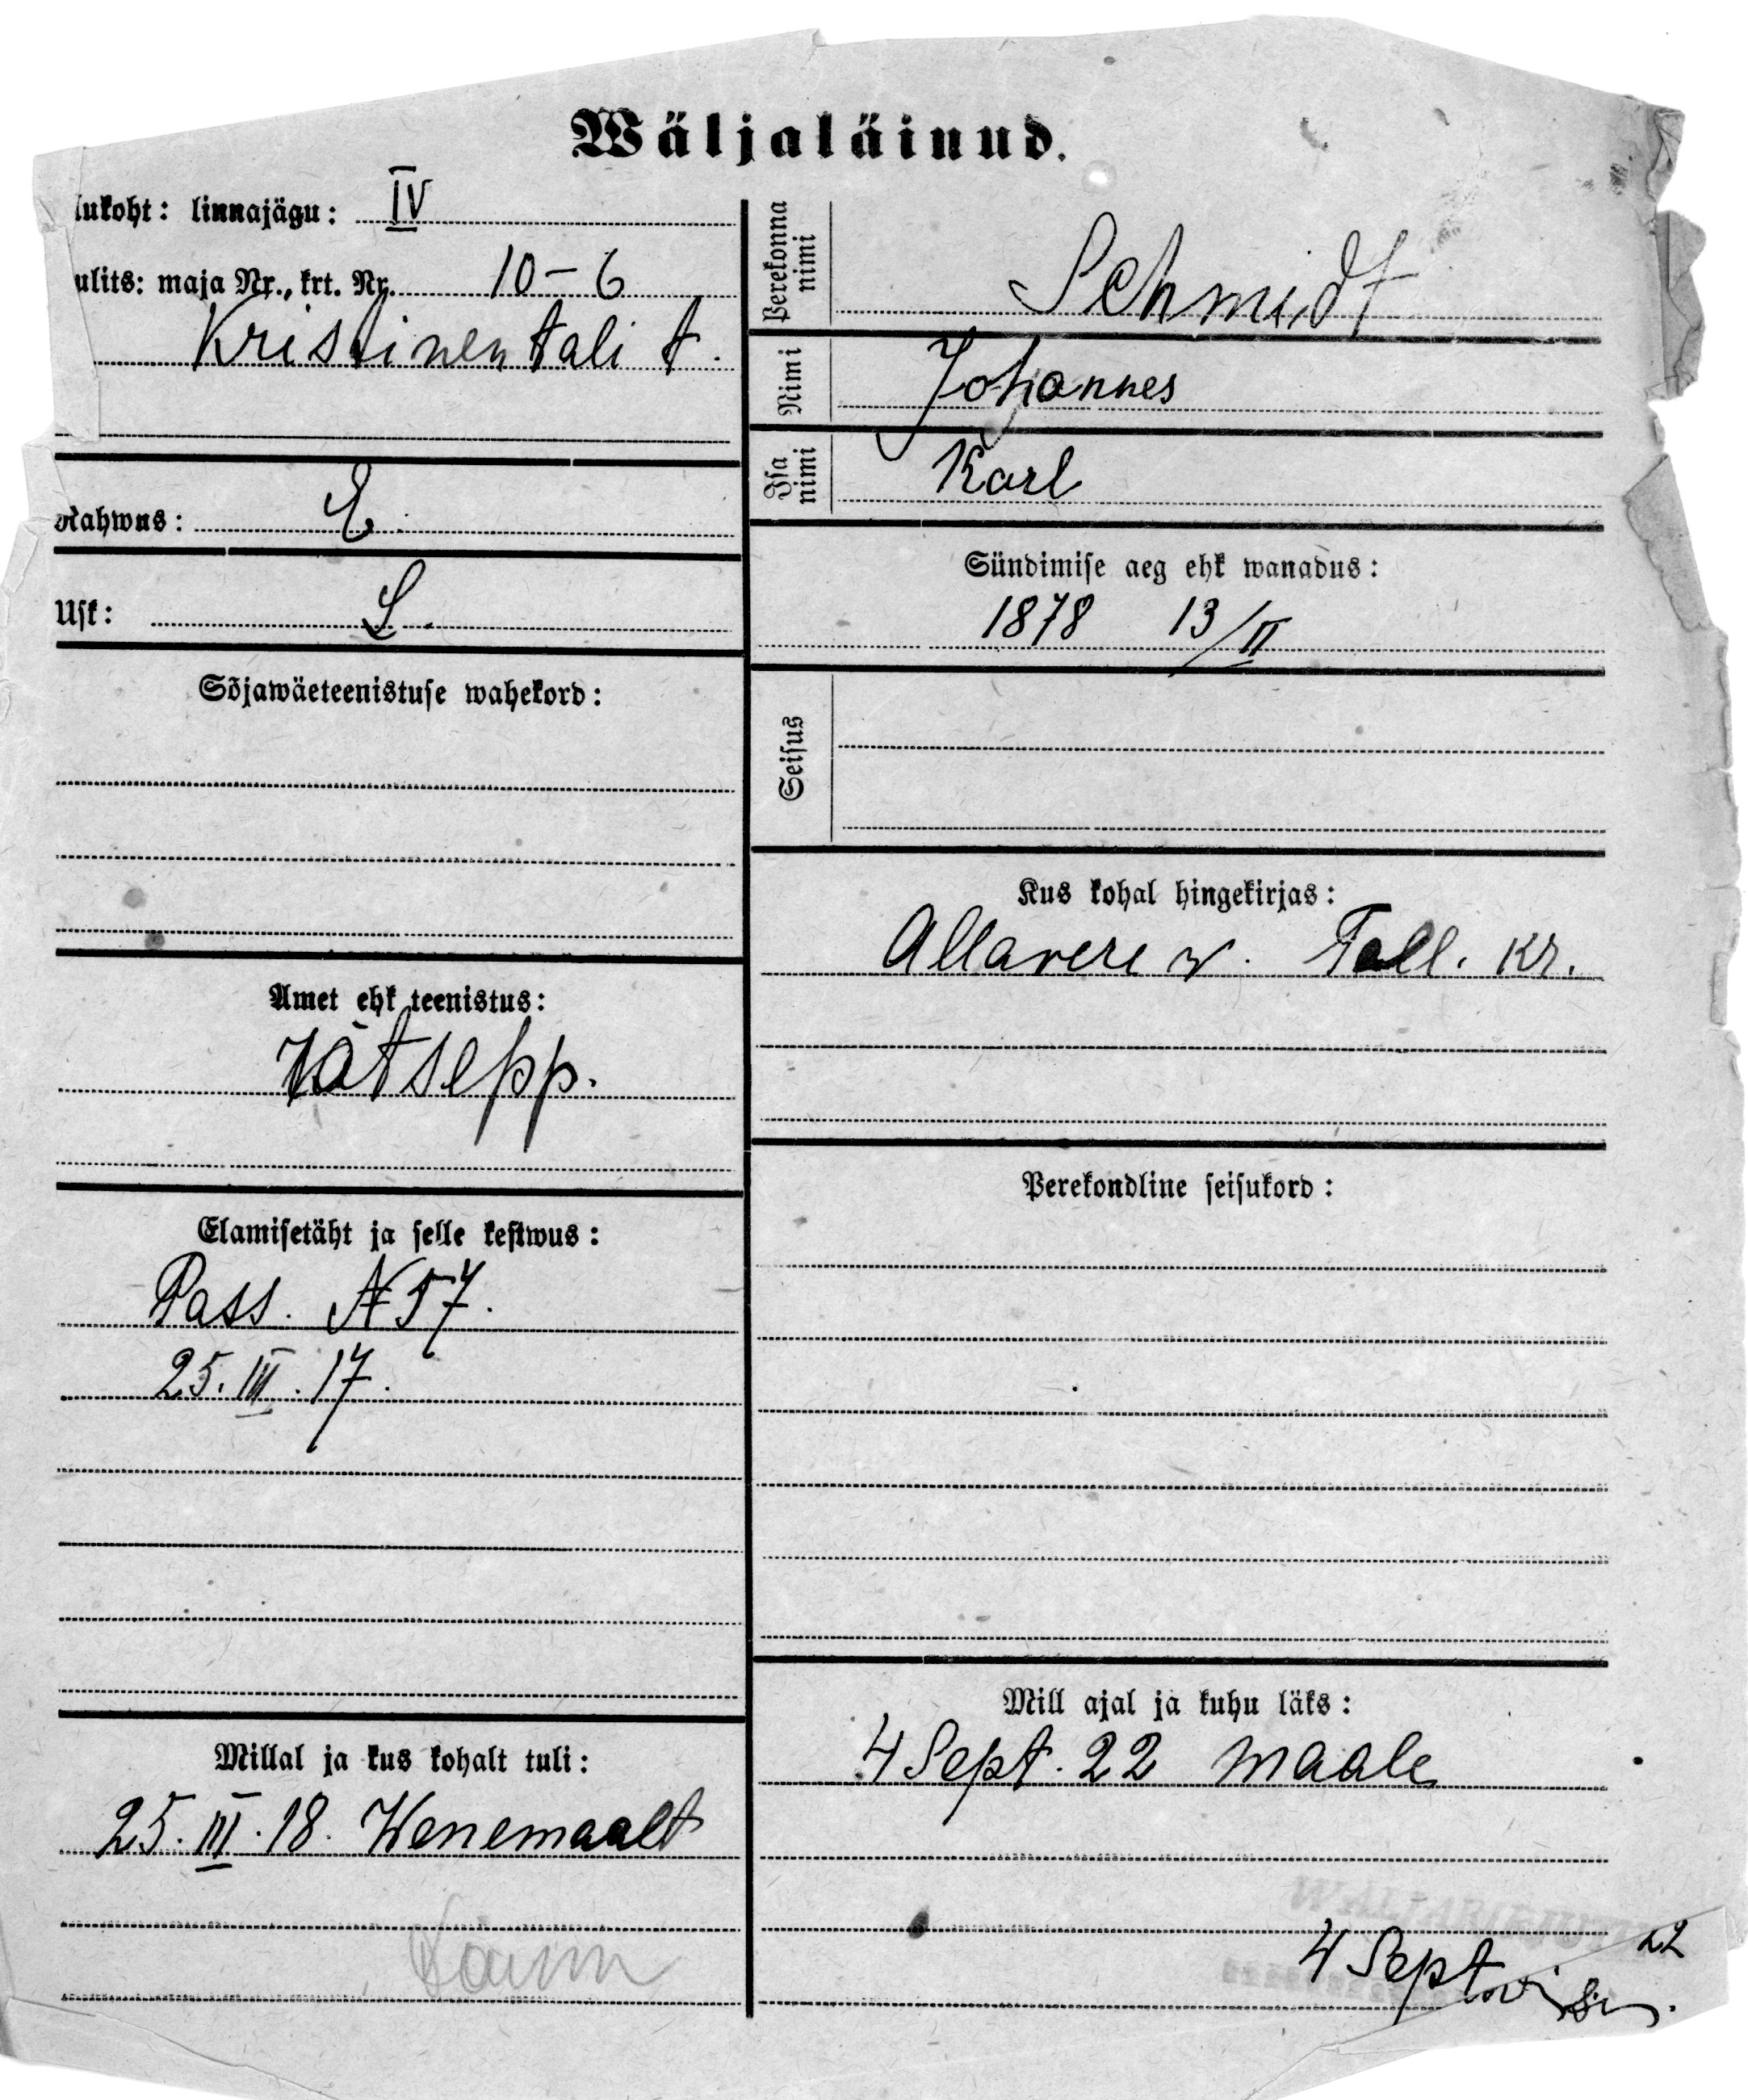 Wäljaläinud.
lukoht: linnajägu: IV
ulits: maja Nr., krt. Nr. 10-6
Kristinentali t.
Rahwus: E.
Usk: L.
Sõjawäeteenistuse wahekord:
Amet ehk teenistus:
rätsepp.
Elamisetäht ja selle kestwus:
Pass. N 57.
25. III. 17.
Millal ja kus kohalt tuli:
25. III. 18. Wenemaalt
Perekonna nimi
Schmidt
Nimi
Johannes
Isa nimi
Karl
Sündimise aeg ehk wanadus:
1878 13/II
Seisus
Kus kohal hingekirjas:
Allavere v. Tall. kr.
Perekondline seisukord:
Mill ajal ja kuhu läks:
4 Sept. 22 maale
4 Sept 22